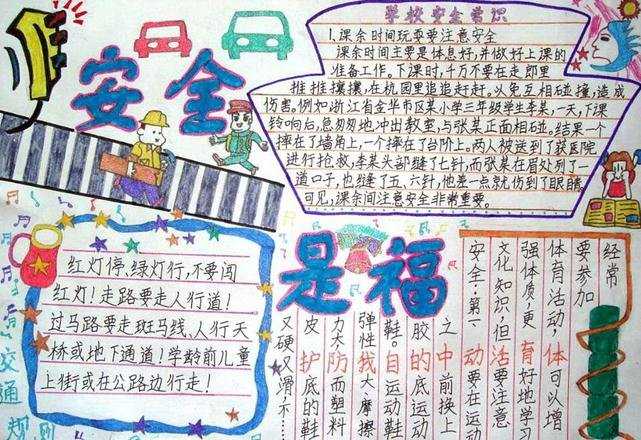 安全
是福
学校安全常识
1.课余时间玩耍要注意安全
课余时间主要是休息好,并做好上课的
准备工作。下课时,千万不要在走郎里
推推攘攘,在校园里追追赶赶。以免互相碰撞,造成
伤害。例如浙江省金华市区某小学三年级学生李某,一天,下课
铃响后,急匆匆地冲出教室,与张某正面相碰。结果一个
摔在了墙角上,一个摔在了台阶上。两人被送到了某医院
进行抢救,李某头部缝了七针,而张某在眉处列了一
道口子,也缝了五、六针,他差一点就伤到了眼睛
可见,课余间注意安全非常重要。
交通规则
红灯停,绿灯行,不要闯
红灯!走路要走人行道!
过马路要走斑马线、人行天
桥或地下通道!学龄前儿童
上街或在公路边行走!
体育活动中的自我防护
经常
要参加
体育活动,可以增
强体质,更好地学习
文化知识,但要注意
安全第一要在运动
之前换上
胶底运动
鞋。运动鞋
弹性大、摩擦
力大而塑料
皮底的鞋
又硬又滑不…